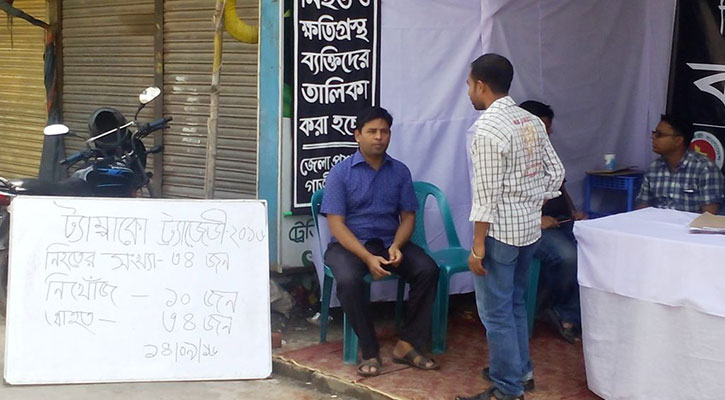 নিহত ও
ক্ষতিগ্রস্থ
ব্যক্তিদের
তালিকা
করা হচ্ছে
জেলা প্রশ
গাজী
ট্যাম্পাকো ট্র্যাজেডী-২০১৬
নিহতের সংখ্যা- ৩৪ জন
নিখোঁজ - ১০ জন
আহত - ৩৪ জন
১৪/০৯/১৬